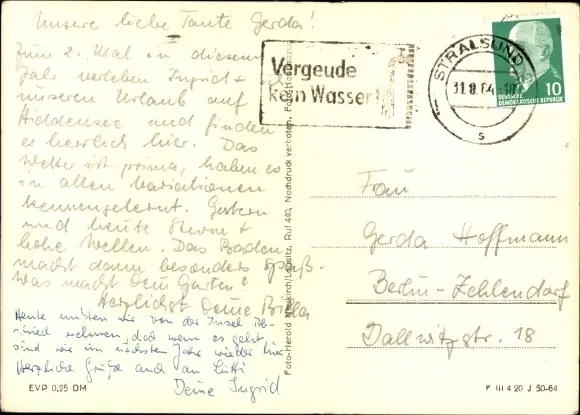 Unsere liebe Tante Gerda!
Zum 2. Mal in diesem
Jahr verleben Ingrid +
unseren Urlaub auf
Hiddensee und finden
es herrlich hier. Das
Wetter ist prima, haben es
in allen Variationen
kennengelernt. Gestern
und heute Sturm +
hohe Wellen. Das Baden
macht dann besonders Spaß.
Was macht Dein Garten?
Herzlichst Deine Brilla
Heute müssen wir von der Insel Ab-
schied nehmen, doch wenn es geht
sind wir im nächsten Jahr wieder hier
Herzliche Grüße auch an Lütti
Deine Ingrid
EVP 0,95 DM
Foto-Herold Neukirch/Lausitz, Ruf 440, Nachdruck verboten.
Vergeude
kein Wasser!
STRALSUND
31.8.64
s
10
DEUTSCHE
DEMOKRATISCHE REPUBLIK
Frau
Gerda Hoffmann
Berlin-Zehlendorf
Dallwitzstr. 18
P III 4 20 J 50-64